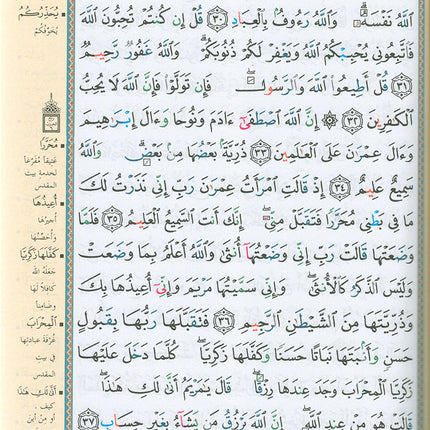 اللَّهُ نَفْسَهُۥ ۗ وَاللَّهُ رَءُوفٌۢ بِالْعِبَادِ ٣٠ قُلْ إِن كُنتُمْ تُحِبُّونَ اللَّهَ
فَاتَّبِعُونِى يُحْبِبْكُمُ اللَّهُ وَيَغْفِرْ لَكُمْ ذُنُوبَكُمْ ۗ وَاللَّهُ غَفُورٌ رَّحِيمٌ
٣١ قُلْ أَطِيعُوا۟ اللَّهَ وَالرَّسُولَ ۖ فَإِن تَوَلَّوْا۟ فَإِنَّ اللَّهَ لَا يُحِبُّ
الْكَٰفِرِينَ ٣٢ ۞ إِنَّ اللَّهَ اصْطَفَىٰٓ ءَادَمَ وَنُوحًا وَءَالَ إِبْرَٰهِيمَ
وَءَالَ عِمْرَٰنَ عَلَى الْعَٰلَمِينَ ٣٣ ذُرِّيَّةًۢ بَعْضُهَا مِنۢ بَعْضٍ ۗ وَاللَّهُ
سَمِيعٌ عَلِيمٌ ٣٤ إِذْ قَالَتِ امْرَأَتُ عِمْرَٰنَ رَبِّ إِنِّى نَذَرْتُ لَكَ
مَا فِى بَطْنِى مُحَرَّرًا فَتَقَبَّلْ مِنِّىٓ ۖ إِنَّكَ أَنتَ السَّمِيعُ الْعَلِيمُ ٣٥ فَلَمَّا
وَضَعَتْهَا قَالَتْ رَبِّ إِنِّى وَضَعْتُهَآ أُنثَىٰ وَاللَّهُ أَعْلَمُ بِمَا وَضَعَتْ
وَلَيْسَ الذَّكَرُ كَالْأُنثَىٰ ۖ وَإِنِّى سَمَّيْتُهَا مَرْيَمَ وَإِنِّىٓ أُعِيذُهَا بِكَ
وَذُرِّيَّتَهَا مِنَ الشَّيْطَٰنِ الرَّجِيمِ ٣٦ فَتَقَبَّلَهَا رَبُّهَا بِقَبُولٍ
حَسَنٍ وَأَنۢبَتَهَا نَبَاتًا حَسَنًا وَكَفَّلَهَا زَكَرِيَّا ۖ كُلَّمَا دَخَلَ عَلَيْهَا
زَكَرِيَّا الْمِحْرَابَ وَجَدَ عِندَهَا رِزْقًا ۖ قَالَ يَٰمَرْيَمُ أَنَّىٰ لَكِ هَٰذَا ۖ
قَالَتْ هُوَ مِنْ عِندِ اللَّهِ ۖ إِنَّ اللَّهَ يَرْزُقُ مَن يَشَآءُ بِغَيْرِ حِسَابٍ ٣٧
يُحَذِّرُكُمُ
يُخَوِّفُكُمْ
مُحَرَّرًا
عَتِيقًا مُفَرَّغًا
لخدمة بيت
المقدس
أُعِيذُهَا
أُجِيرُهَا
وَأُحَصِّنُهَا
كَفَّلَهَا زَكَرِيَّا
جَعَلَهُ اللهُ
كَافِلًا لَهَا
وضَامِنًا
الْمِحْرَابَ
غُرْفَة عبادتها
في بيت
المقدس
أَنَّىٰ لَكِ هَٰذَا
كيف،
أو من أين